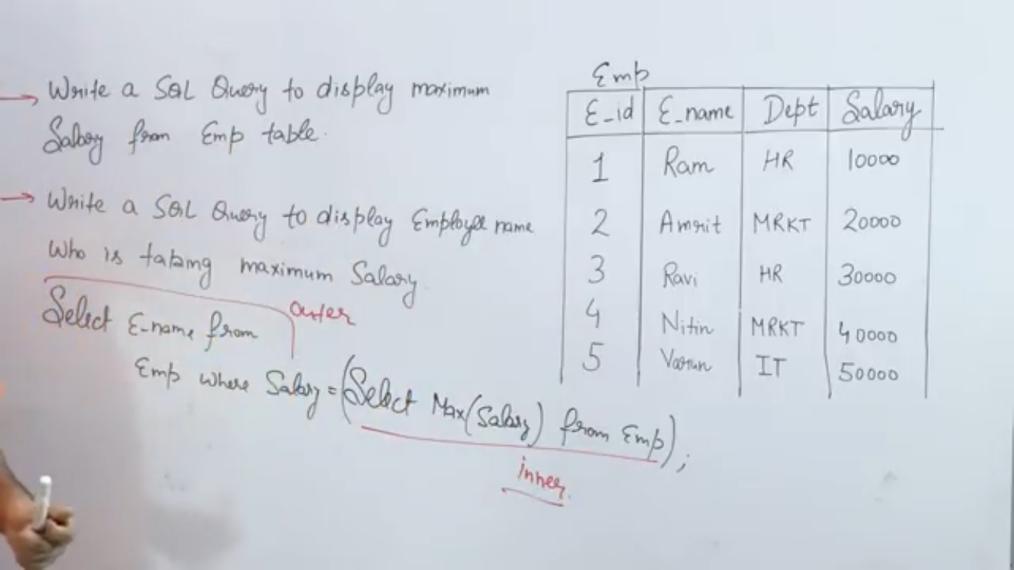 → Write a SQL Query to display maximum
Salary from Emp table.
→ Write a SQL Query to display Employee name
who is taking maximum Salary.
outer
Select E_name from
Emp where Salary = (Select Max(Salary) from Emp);
inner
Emp
E_id E_name Dept Salary
1 Ram HR 10000
2 Amrit MRKT 20000
3 Ravi HR 30000
4 Nitin MRKT 40000
5 Varun IT 50000